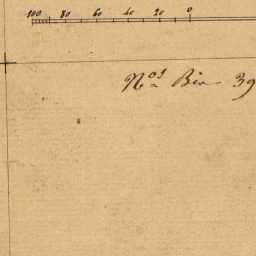 100 80 60 40 20 0
Nos Bin 39